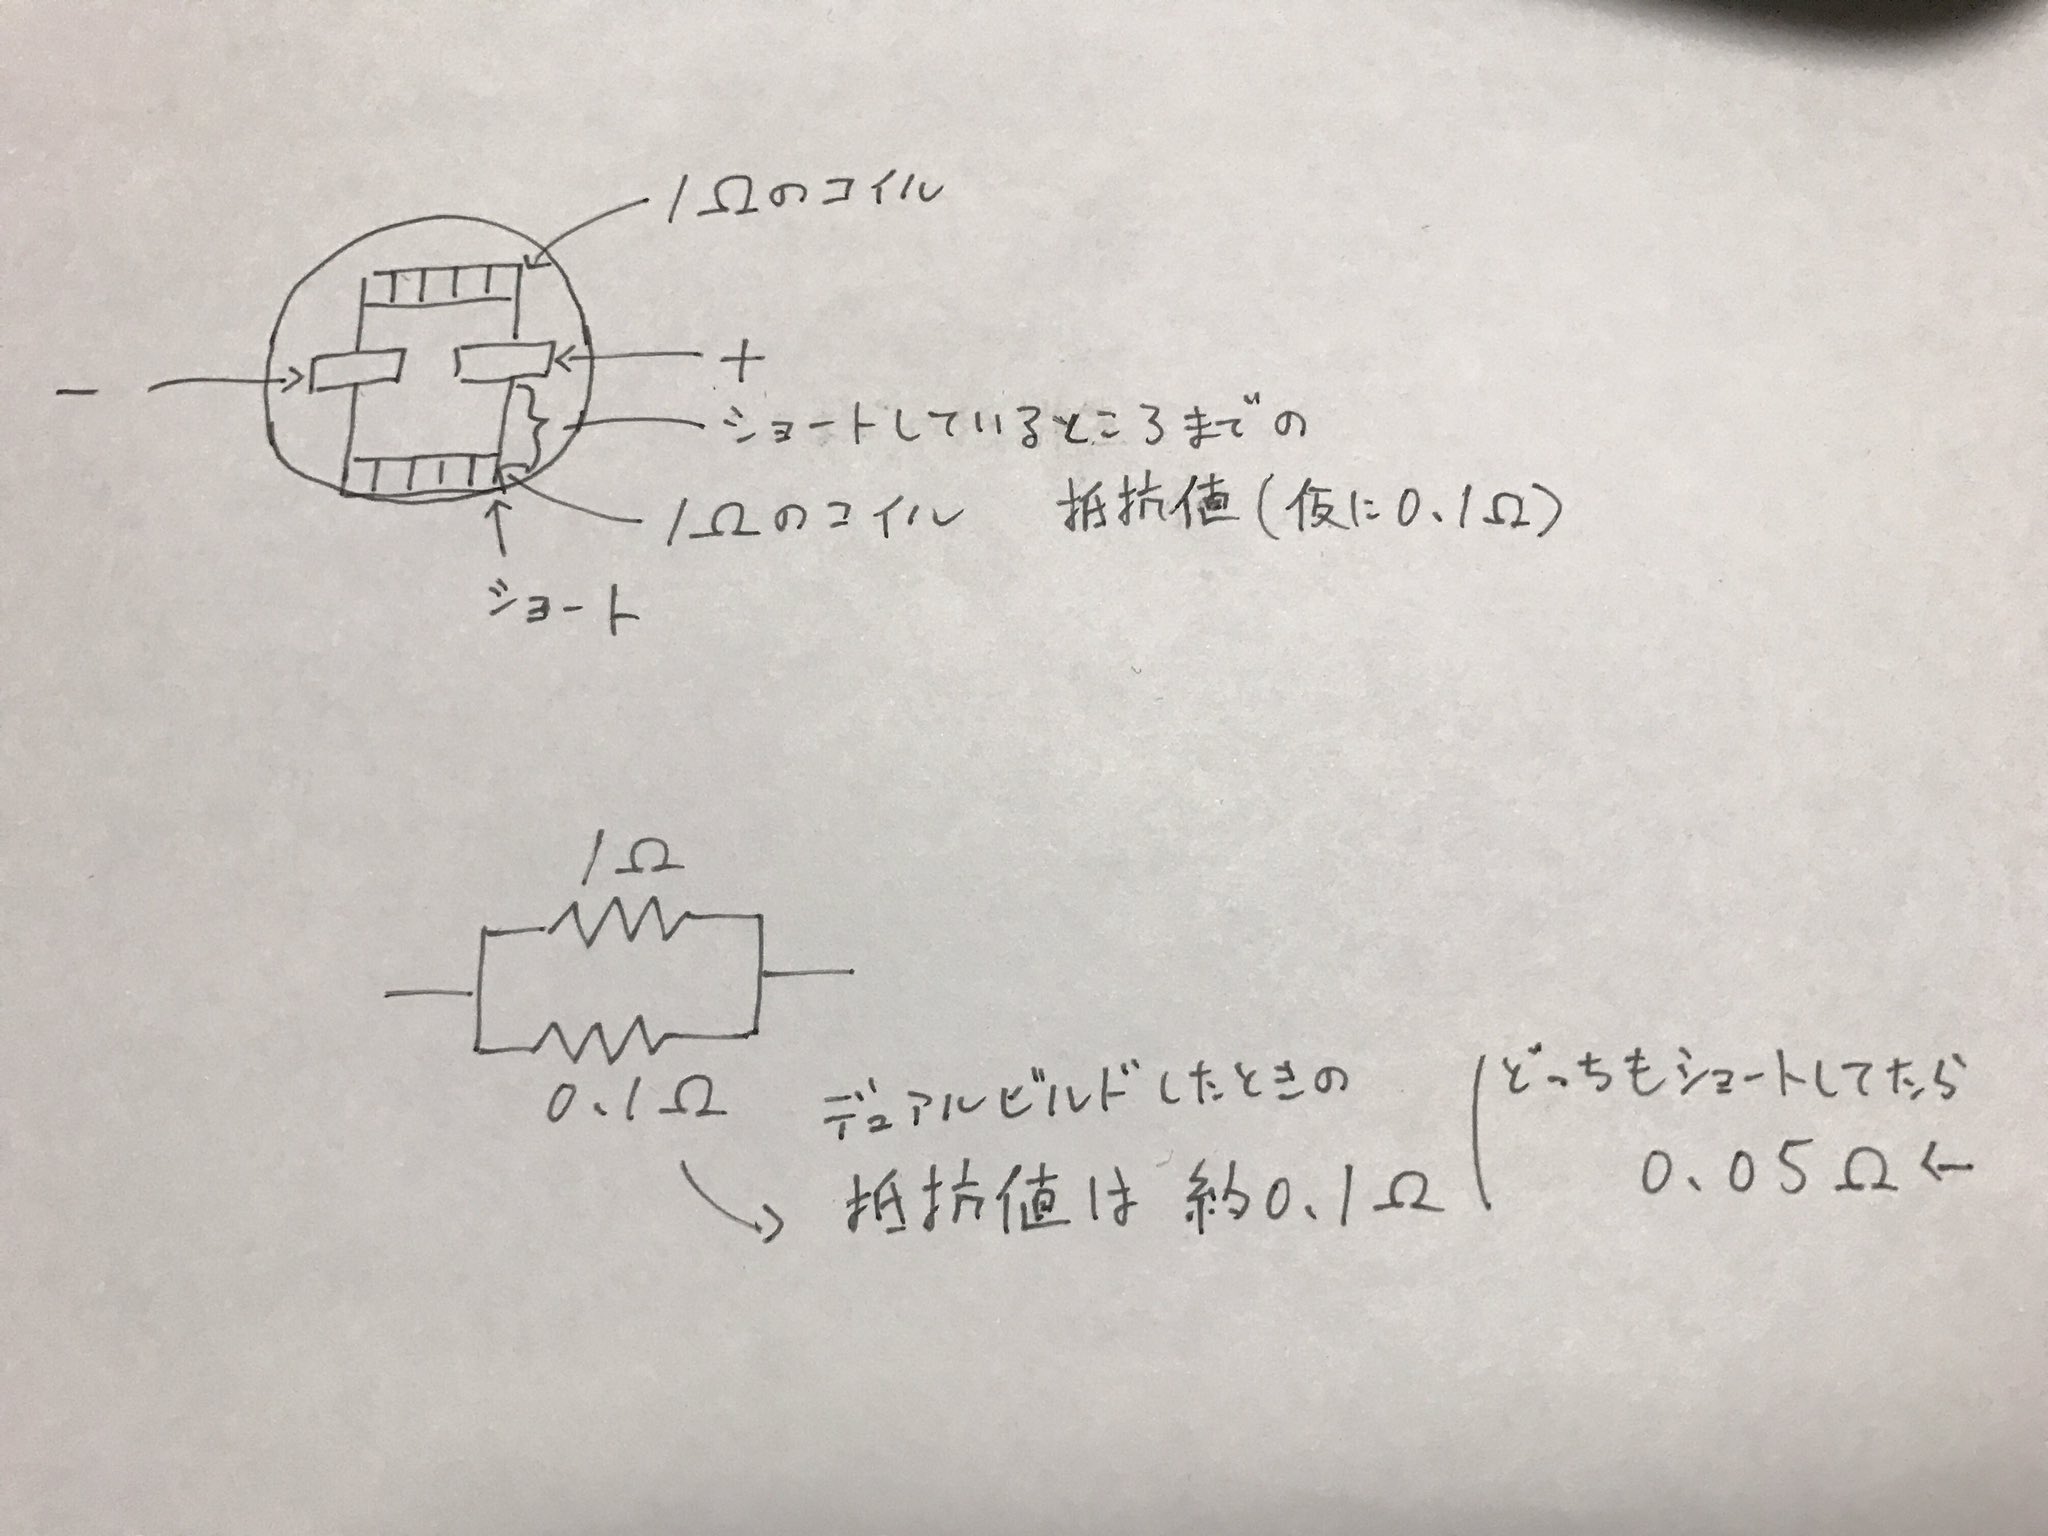 1Ωのコイル
−
+
ショートしているところまでの
抵抗値(仮に0.1Ω)
1Ωのコイル
ショート
1Ω
0.1Ω
デュアルビルドしたときの
抵抗値は 約0.1Ω
どっちもショートしてたら
0.05Ω←